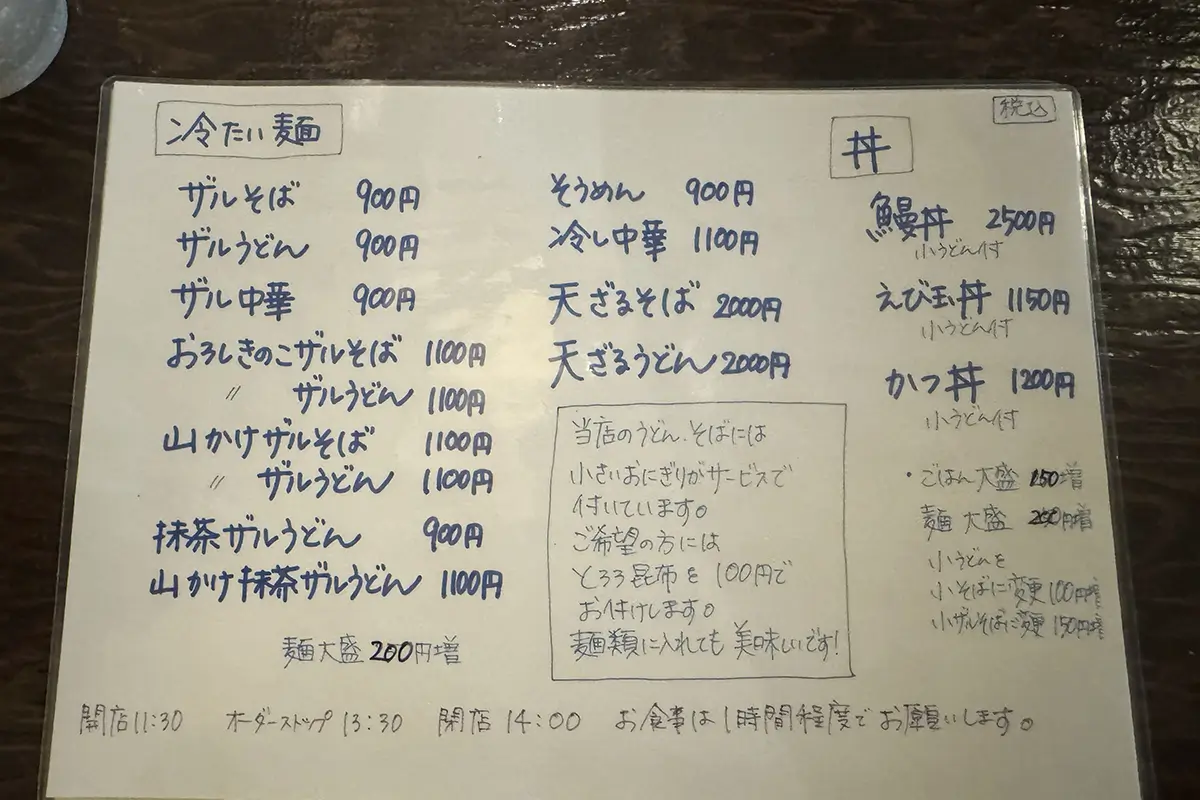 冷たい麺
ザルそば 900円
ザルうどん 900円
ザル中華 900円
おろしきのこザルそば 1100円
〃 ザルうどん 1100円
山かけザルそば 1100円
〃 ザルうどん 1100円
抹茶ザルうどん 900円
山かけ抹茶ザルうどん 1100円
麺大盛200円増
そうめん 900円
冷し中華 1100円
天ざるそば 2000円
天ざるうどん 2000円
当店のうどん.そばには
小さいおにぎりがサービスで
付いています。
ご希望の方には
とろろ昆布を100円で
お付けします。
麺類に入れても美味しいです!
税込
丼
鰻丼 2500円
小うどん付
えび玉丼 1150円
小うどん付
かつ丼 1200円
小うどん付
・ごはん大盛 150増
麺大盛 200円増
小うどんを
小そばに変更100円増
小ザルそばに変更150円増
開店11:30 オーダーストップ 13:30 閉店 14:00 お食事は1時間程度でお願いします。